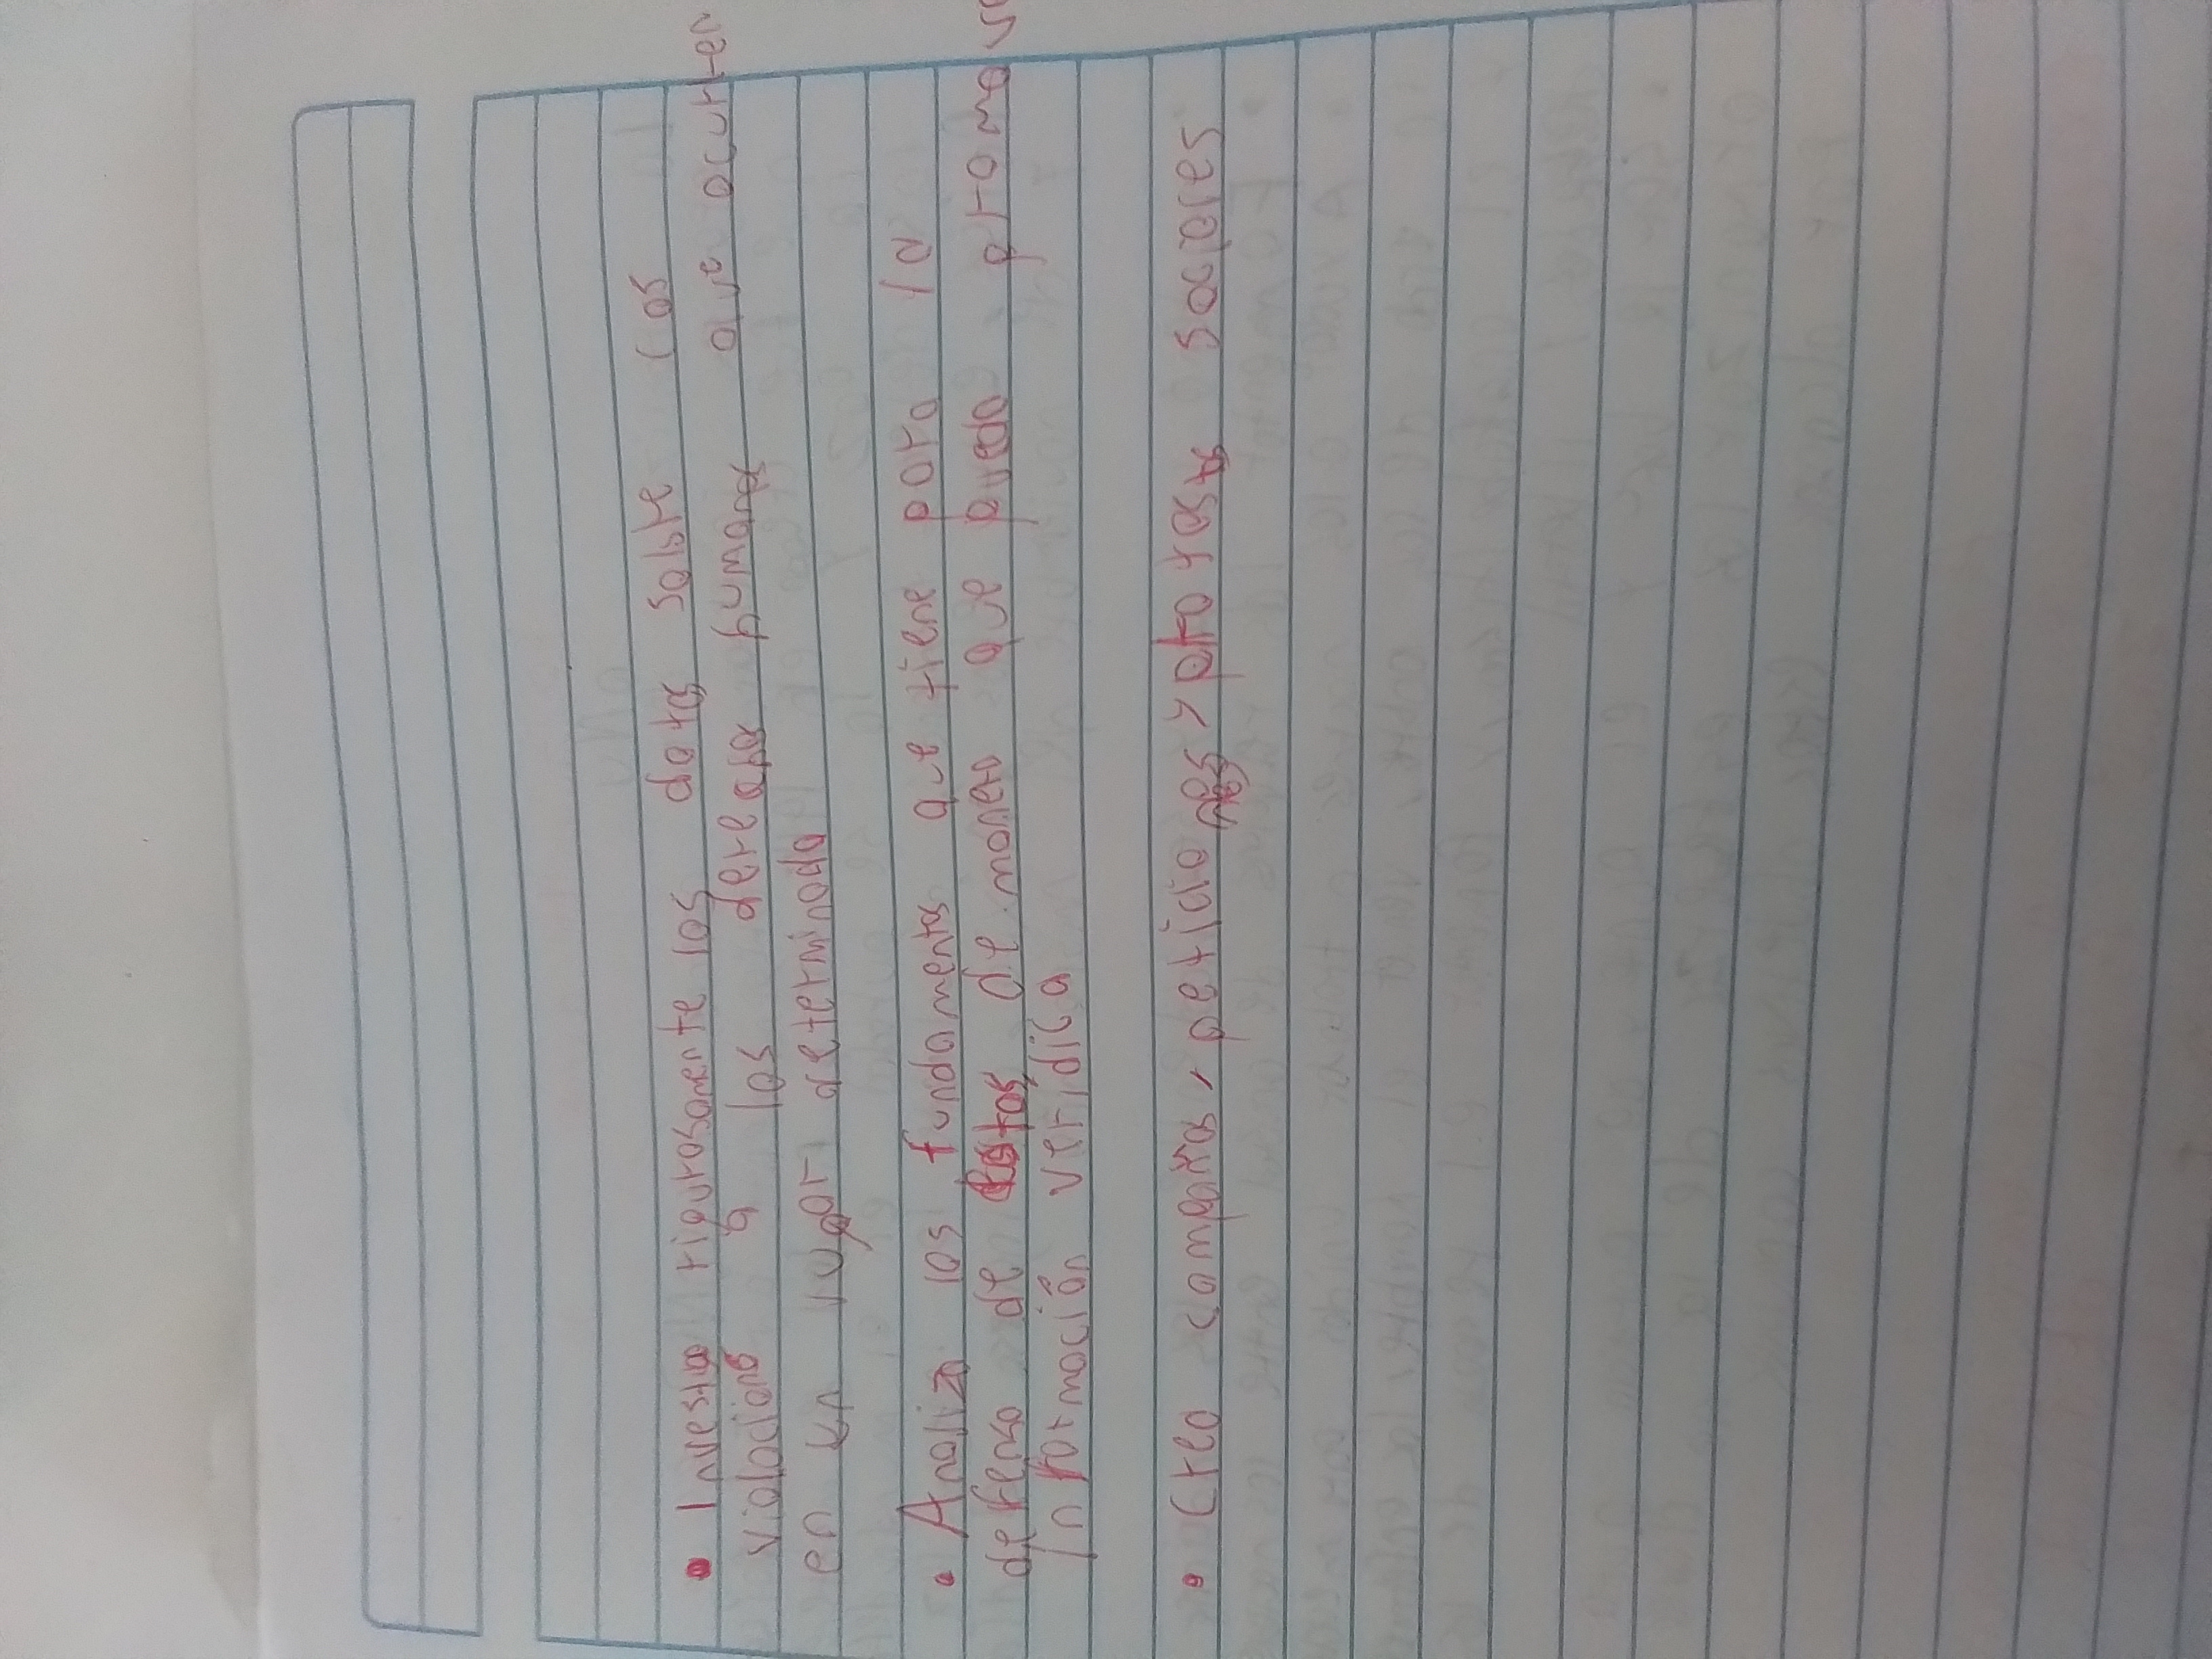 • Investiga rigurosamente los datos sobre las
violaciones a los derechos humanos que ocurren
en un lugar determinado
• Analiza los fundamentos que tiene para la
defensa de estos, de manera que pueda promov
Información verídica
• Crea campañas, peticiones y protestas sociales